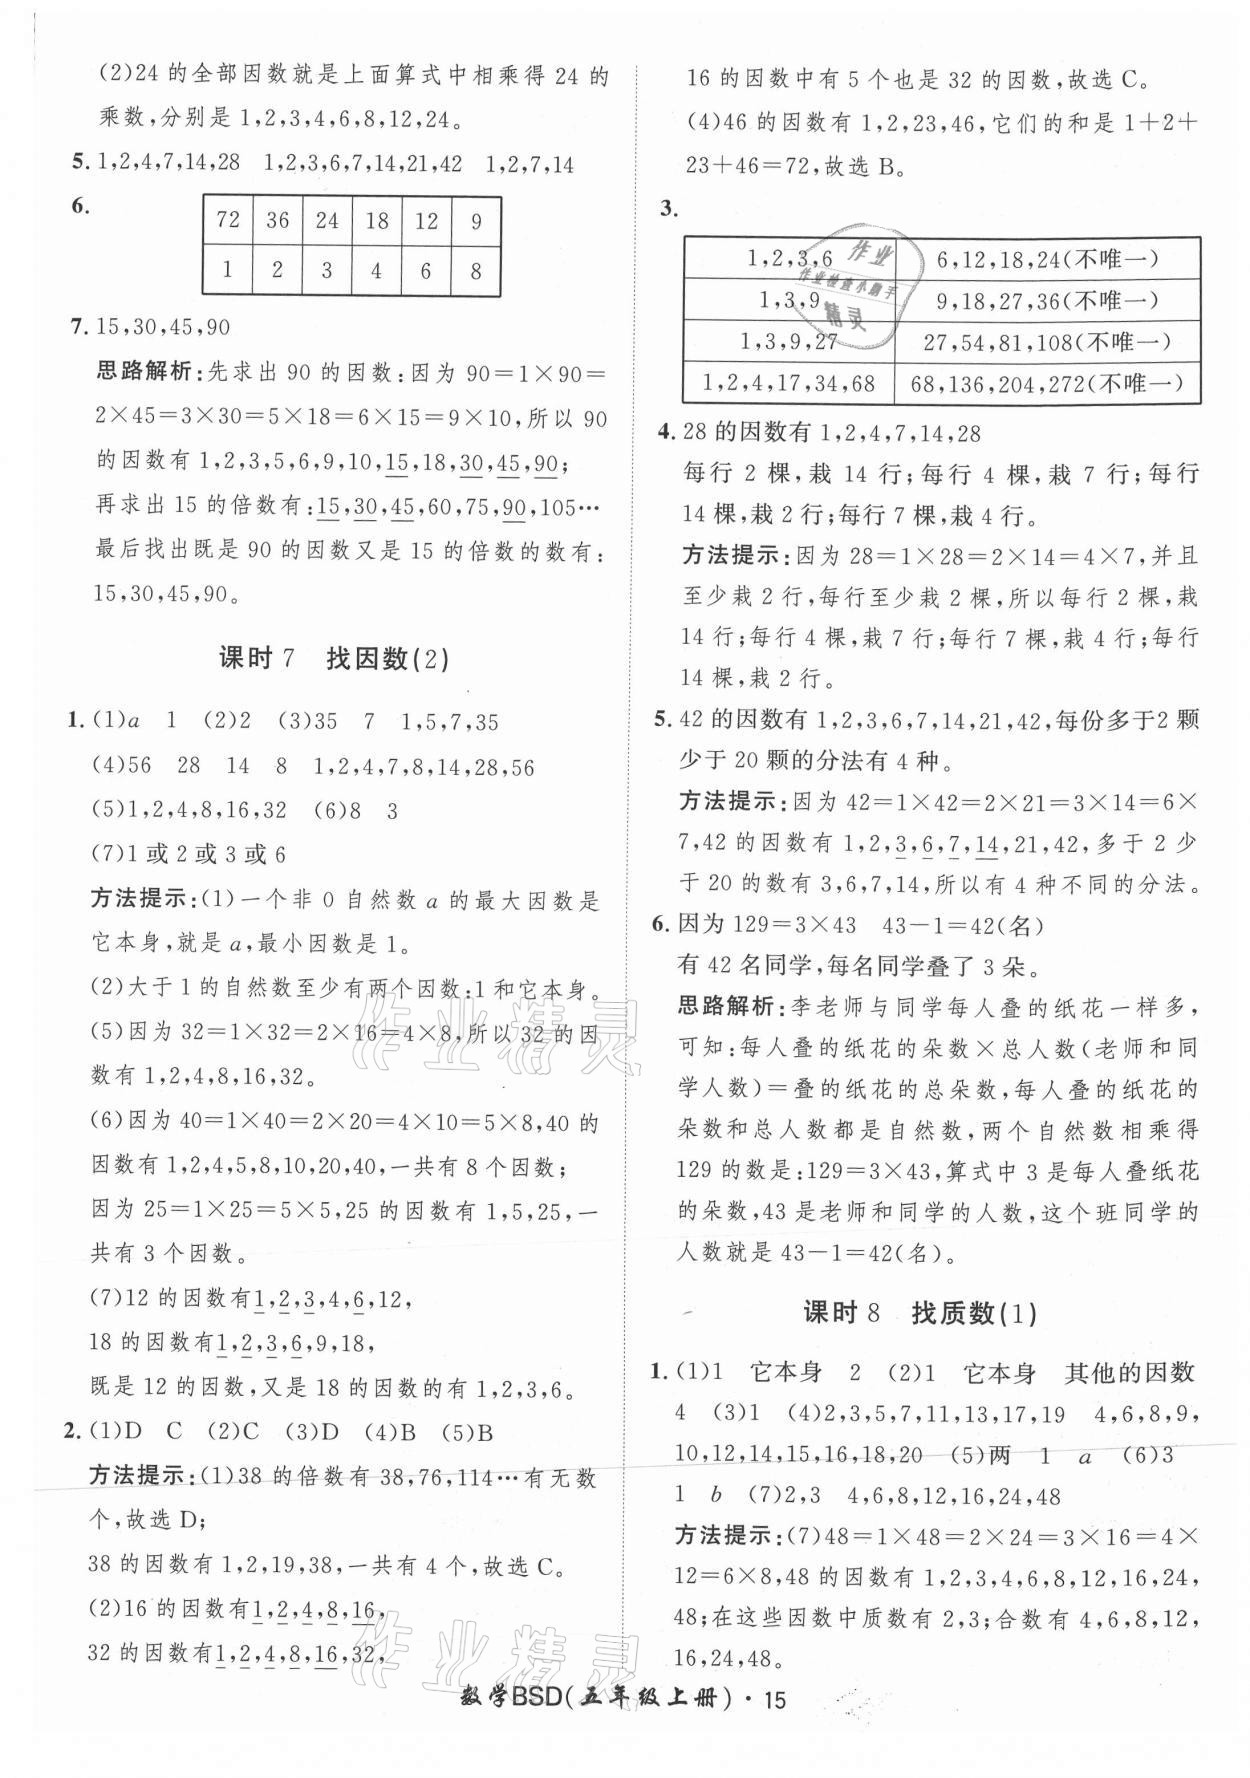 (2)24 的全部因数就是上面算式中相乘得 24 的
乘数,分别是 1,2,3,4,6,8,12,24。
5. 1,2,4,7,14,28 1,2,3,6,7,14,21,42 1,2,7,14
6.
72 36 24 18 12 9
1 2 3 4 6 8
7. 15,30,45,90
思路解析:先求出 90 的因数:因为 90=1×90=
2×45=3×30=5×18=6×15=9×10,所以 90
的因数有 1,2,3,5,6,9,10,15,18,30,45,90;
再求出 15 的倍数有:15,30,45,60,75,90,105…
最后找出既是 90 的因数又是 15 的倍数的数有:
15,30,45,90。
课时 7 找因数(2)
1. (1)a 1 (2)2 (3)35 7 1,5,7,35
(4)56 28 14 8 1,2,4,7,8,14,28,56
(5)1,2,4,8,16,32 (6)8 3
(7)1 或 2 或 3 或 6
方法提示:(1)一个非 0 自然数 a 的最大因数是
它本身,就是 a,最小因数是 1。
(2)大于 1 的自然数至少有两个因数:1 和它本身。
(5)因为 32=1×32=2×16=4×8,所以 32 的因
数有 1,2,4,8,16,32。
(6)因为 40=1×40=2×20=4×10=5×8,40 的
因数有 1,2,4,5,8,10,20,40,一共有 8 个因数;
因为 25=1×25=5×5,25 的因数有 1,5,25,一
共有 3 个因数。
(7)12 的因数有1,2,3,4,6,12,
18 的因数有1,2,3,6,9,18,
既是 12 的因数,又是 18 的因数的有 1,2,3,6。
2. (1)D C (2)C (3)D (4)B (5)B
方法提示:(1)38 的倍数有 38,76,114…有无数
个,故选 D;
38 的因数有 1,2,19,38,一共有 4 个,故选 C。
(2)16 的因数有1,2,4,8,16,
32 的因数有1,2,4,8,16,32,
16 的因数中有 5 个也是 32 的因数,故选 C。
(4)46 的因数有 1,2,23,46,它们的和是 1+2+
23+46=72,故选 B。
3.
1,2,3,6 6,12,18,24(不唯一)
1,3,9 9,18,27,36(不唯一)
1,3,9,27 27,54,81,108(不唯一)
1,2,4,17,34,68 68,136,204,272(不唯一)
作业
作业检查小助手
精灵
4. 28 的因数有 1,2,4,7,14,28
每行 2 棵,栽 14 行;每行 4 棵,栽 7 行;每行
14 棵,栽 2 行;每行 7 棵,栽 4 行。
方法提示:因为 28=1×28=2×14=4×7,并且
至少栽 2 行,每行至少栽 2 棵,所以每行 2 棵,栽
14 行;每行 4 棵,栽 7 行;每行 7 棵,栽 4 行;每行
14 棵,栽 2 行。
5. 42 的因数有 1,2,3,6,7,14,21,42,每份多于2 颗
少于 20 颗的分法有 4 种。
方法提示:因为 42=1×42=2×21=3×14=6×
7,42 的因数有 1,2,3,6,7,14,21,42,多于 2 少
于 20 的数有 3,6,7,14,所以有 4 种不同的分法。
6. 因为 129=3×43 43-1=42(名)
有 42 名同学,每名同学叠了 3 朵。
思路解析:李老师与同学每人叠的纸花一样多,
可知:每人叠的纸花的朵数×总人数(老师和同
学人数)=叠的纸花的总朵数,每人叠的纸花的
朵数和总人数都是自然数,两个自然数相乘得
129 的数是:129=3×43,算式中 3 是每人叠纸花
的朵数,43 是老师和同学的人数,这个班同学的
人数就是 43-1=42(名)。
课时 8 找质数(1)
1. (1)1 它本身 2 (2)1 它本身 其他的因数
4 (3)1 (4)2,3,5,7,11,13,17,19 4,6,8,9,
10,12,14,15,16,18,20 (5)两 1 a (6)3
1 b (7)2,3 4,6,8,12,16,24,48
方法提示:(7)48=1×48=2×24=3×16=4×
12=6×8,48 的因数有 1,2,3,4,6,8,12,16,24,
48;在这些因数中质数有 2,3;合数有 4,6,8,12,
16,24,48。
作业精灵
作业精灵
数学BSD(五年级上册)·15